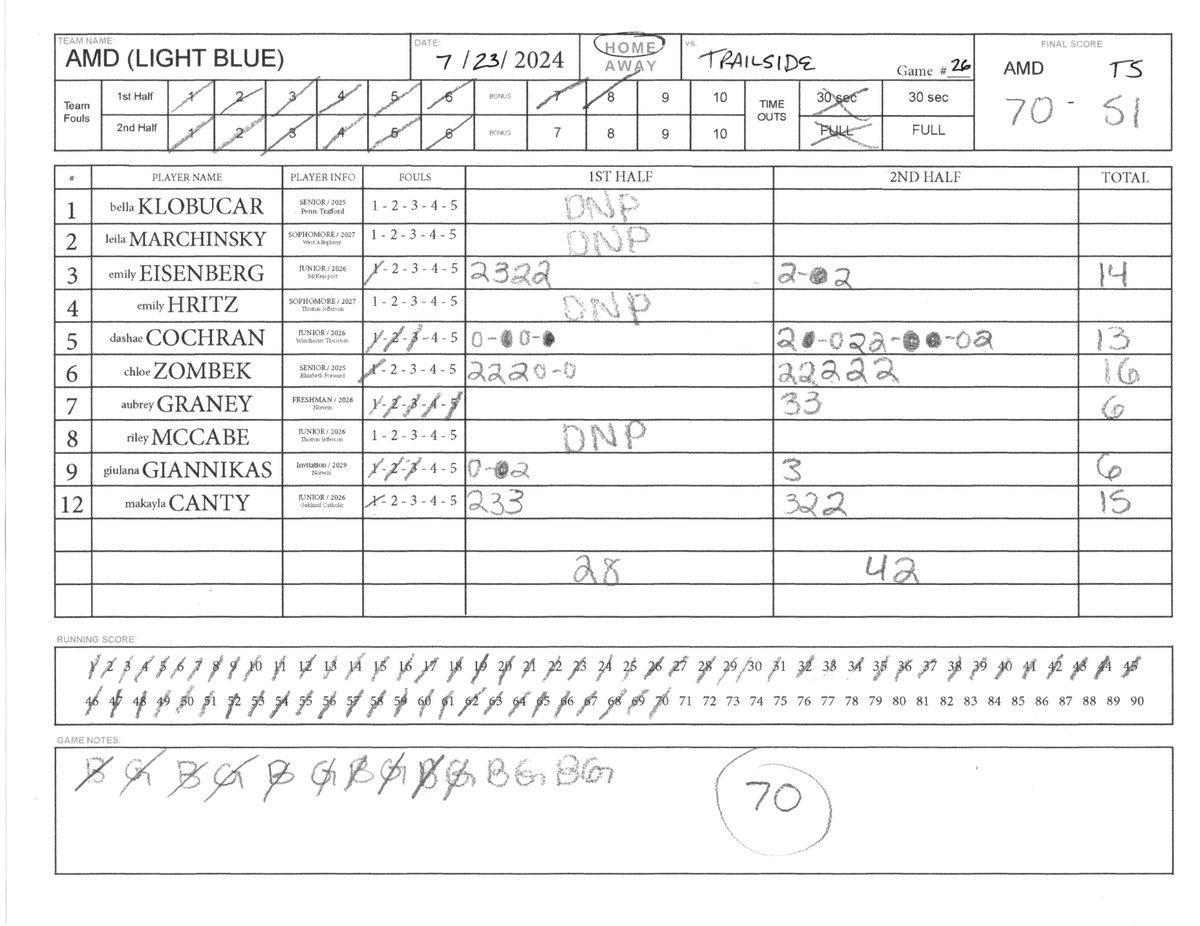 TEAM NAME: DATE: HOME VS. FINAL SCORE
AMD (LIGHT BLUE) 7 / 23 / 2024 AWAY TRAILSIDE Game # 26 AMD TS
70 - 51
Team Fouls 1st Half 1 2 3 4 5 6 BONUS 7 8 9 10 TIME OUTS 30 sec 30 sec
2nd Half 1 2 3 4 5 6 BONUS 7 8 9 10 FULL FULL
# PLAYER NAME PLAYER INFO FOULS 1ST HALF 2ND HALF TOTAL
1 bella KLOBUCAR SENIOR / 2025 Penn-Trafford 1 - 2 - 3 - 4 - 5 DNP
2 leila MARCHINSKY SOPHOMORE / 2027 West Allegheny 1 - 2 - 3 - 4 - 5 DNP
3 emily EISENBERG JUNIOR / 2026 McKeesport 1 - 2 - 3 - 4 - 5 2322 2-●2 14
4 emily HRITZ SOPHOMORE / 2027 Thomas Jefferson 1 - 2 - 3 - 4 - 5 DNP
5 dashae COCHRAN JUNIOR / 2026 Winchester Thurston 1 - 2 - 3 - 4 - 5 0-●0-● 2●-022-●●-02 13
6 chloe ZOMBEK SENIOR / 2025 Elizabeth Forward 1 - 2 - 3 - 4 - 5 2220-0 22222 16
7 aubrey GRANEY FRESHMAN / 2028 Norwin 1 - 2 - 3 - 4 - 5 33 6
8 riley MCCABE JUNIOR / 2026 Thomas Jefferson 1 - 2 - 3 - 4 - 5 DNP
9 giulana GIANNIKAS Invitation / 2029 Norwin 1 - 2 - 3 - 4 - 5 0-●2 3 6
12 makayla CANTY JUNIOR / 2026 Oakland Catholic 1 - 2 - 3 - 4 - 5 233 322 15
28 42
RUNNING SCORE:
1 2 3 4 5 6 7 8 9 10 11 12 13 14 15 16 17 18 19 20 21 22 23 24 25 26 27 28 29 30 31 32 33 34 35 36 37 38 39 40 41 42 43 44 45
46 47 48 49 50 51 52 53 54 55 56 57 58 59 60 61 62 63 64 65 66 67 68 69 70 71 72 73 74 75 76 77 78 79 80 81 82 83 84 85 86 87 88 89 90
GAME NOTES:
B G B G B G B G B G B G B G
70